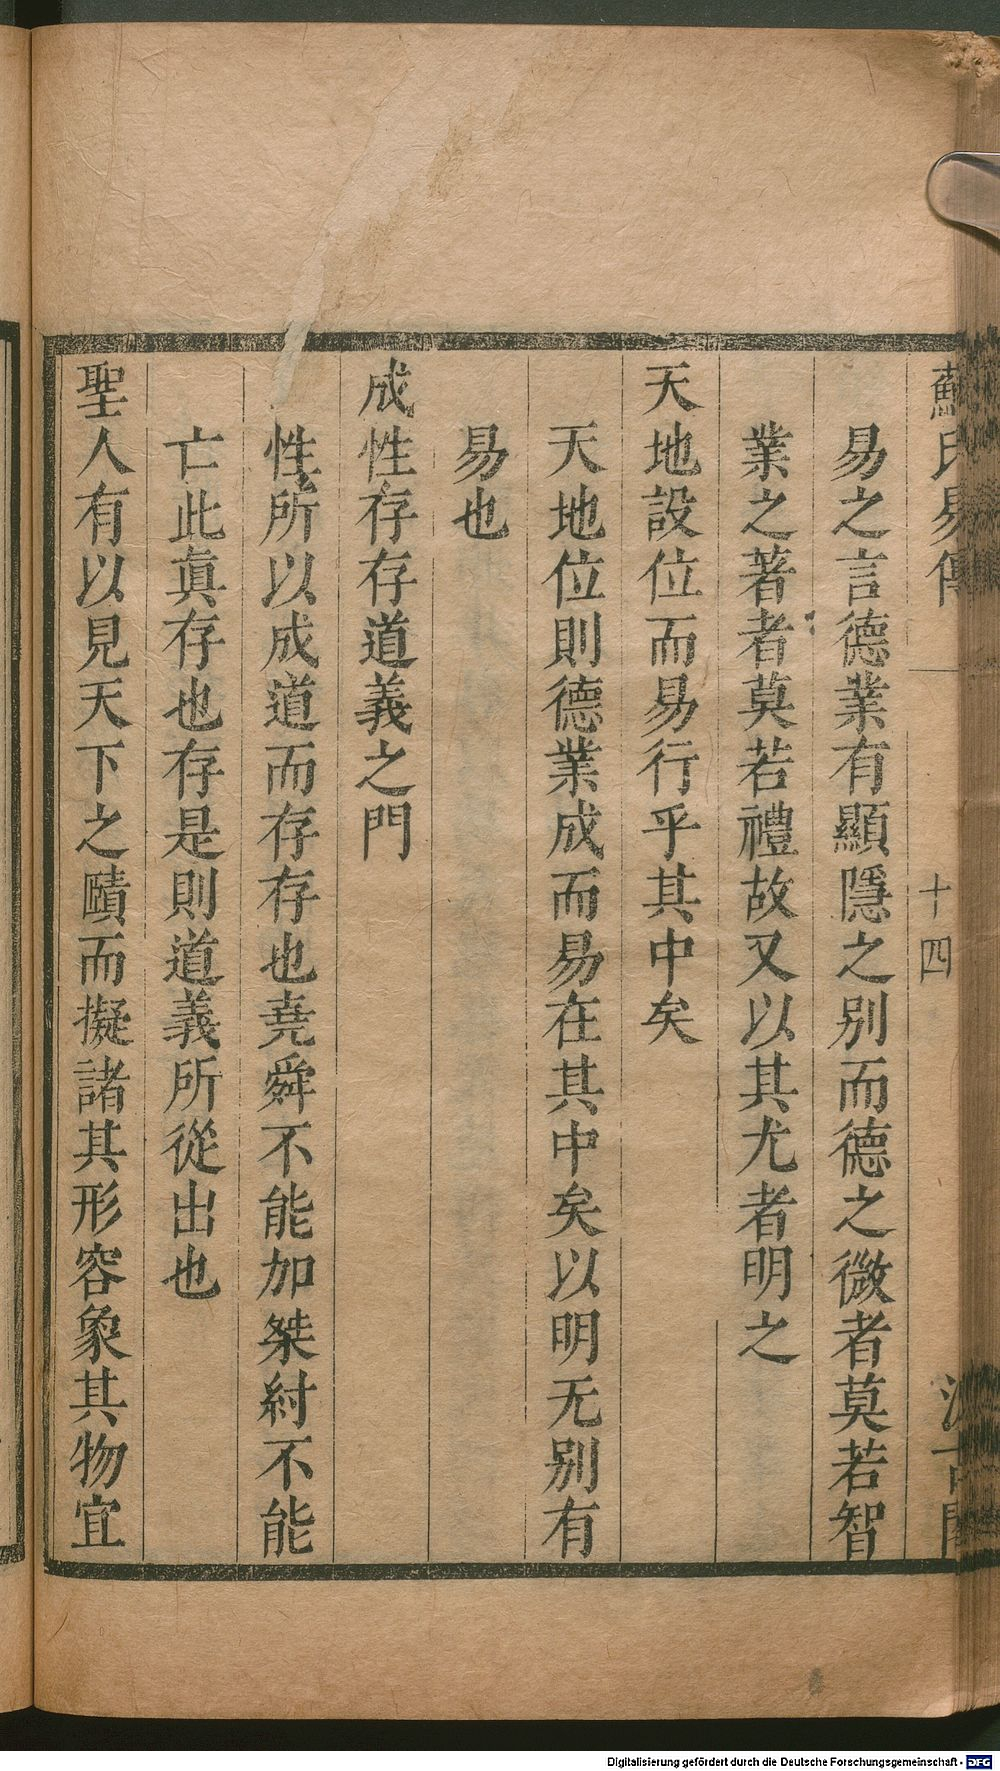 蘇氏易傳 十四 汲古閣
易之言德業有顯隱之別而德之微者莫若智
業之著者莫若禮故又以其尤者明之
天地設位而易行乎其中矣
天地位則德業成而易在其中矣以明无別有
易也
成性存存道義之門
性所以成道而存存也堯舜不能加桀紂不能
亡此眞存也存是則道義所從出也
聖人有以見天下之賾而擬諸其形容象其物宜
Digitalisierung gefördert durch die Deutsche Forschungsgemeinschaft - DFG